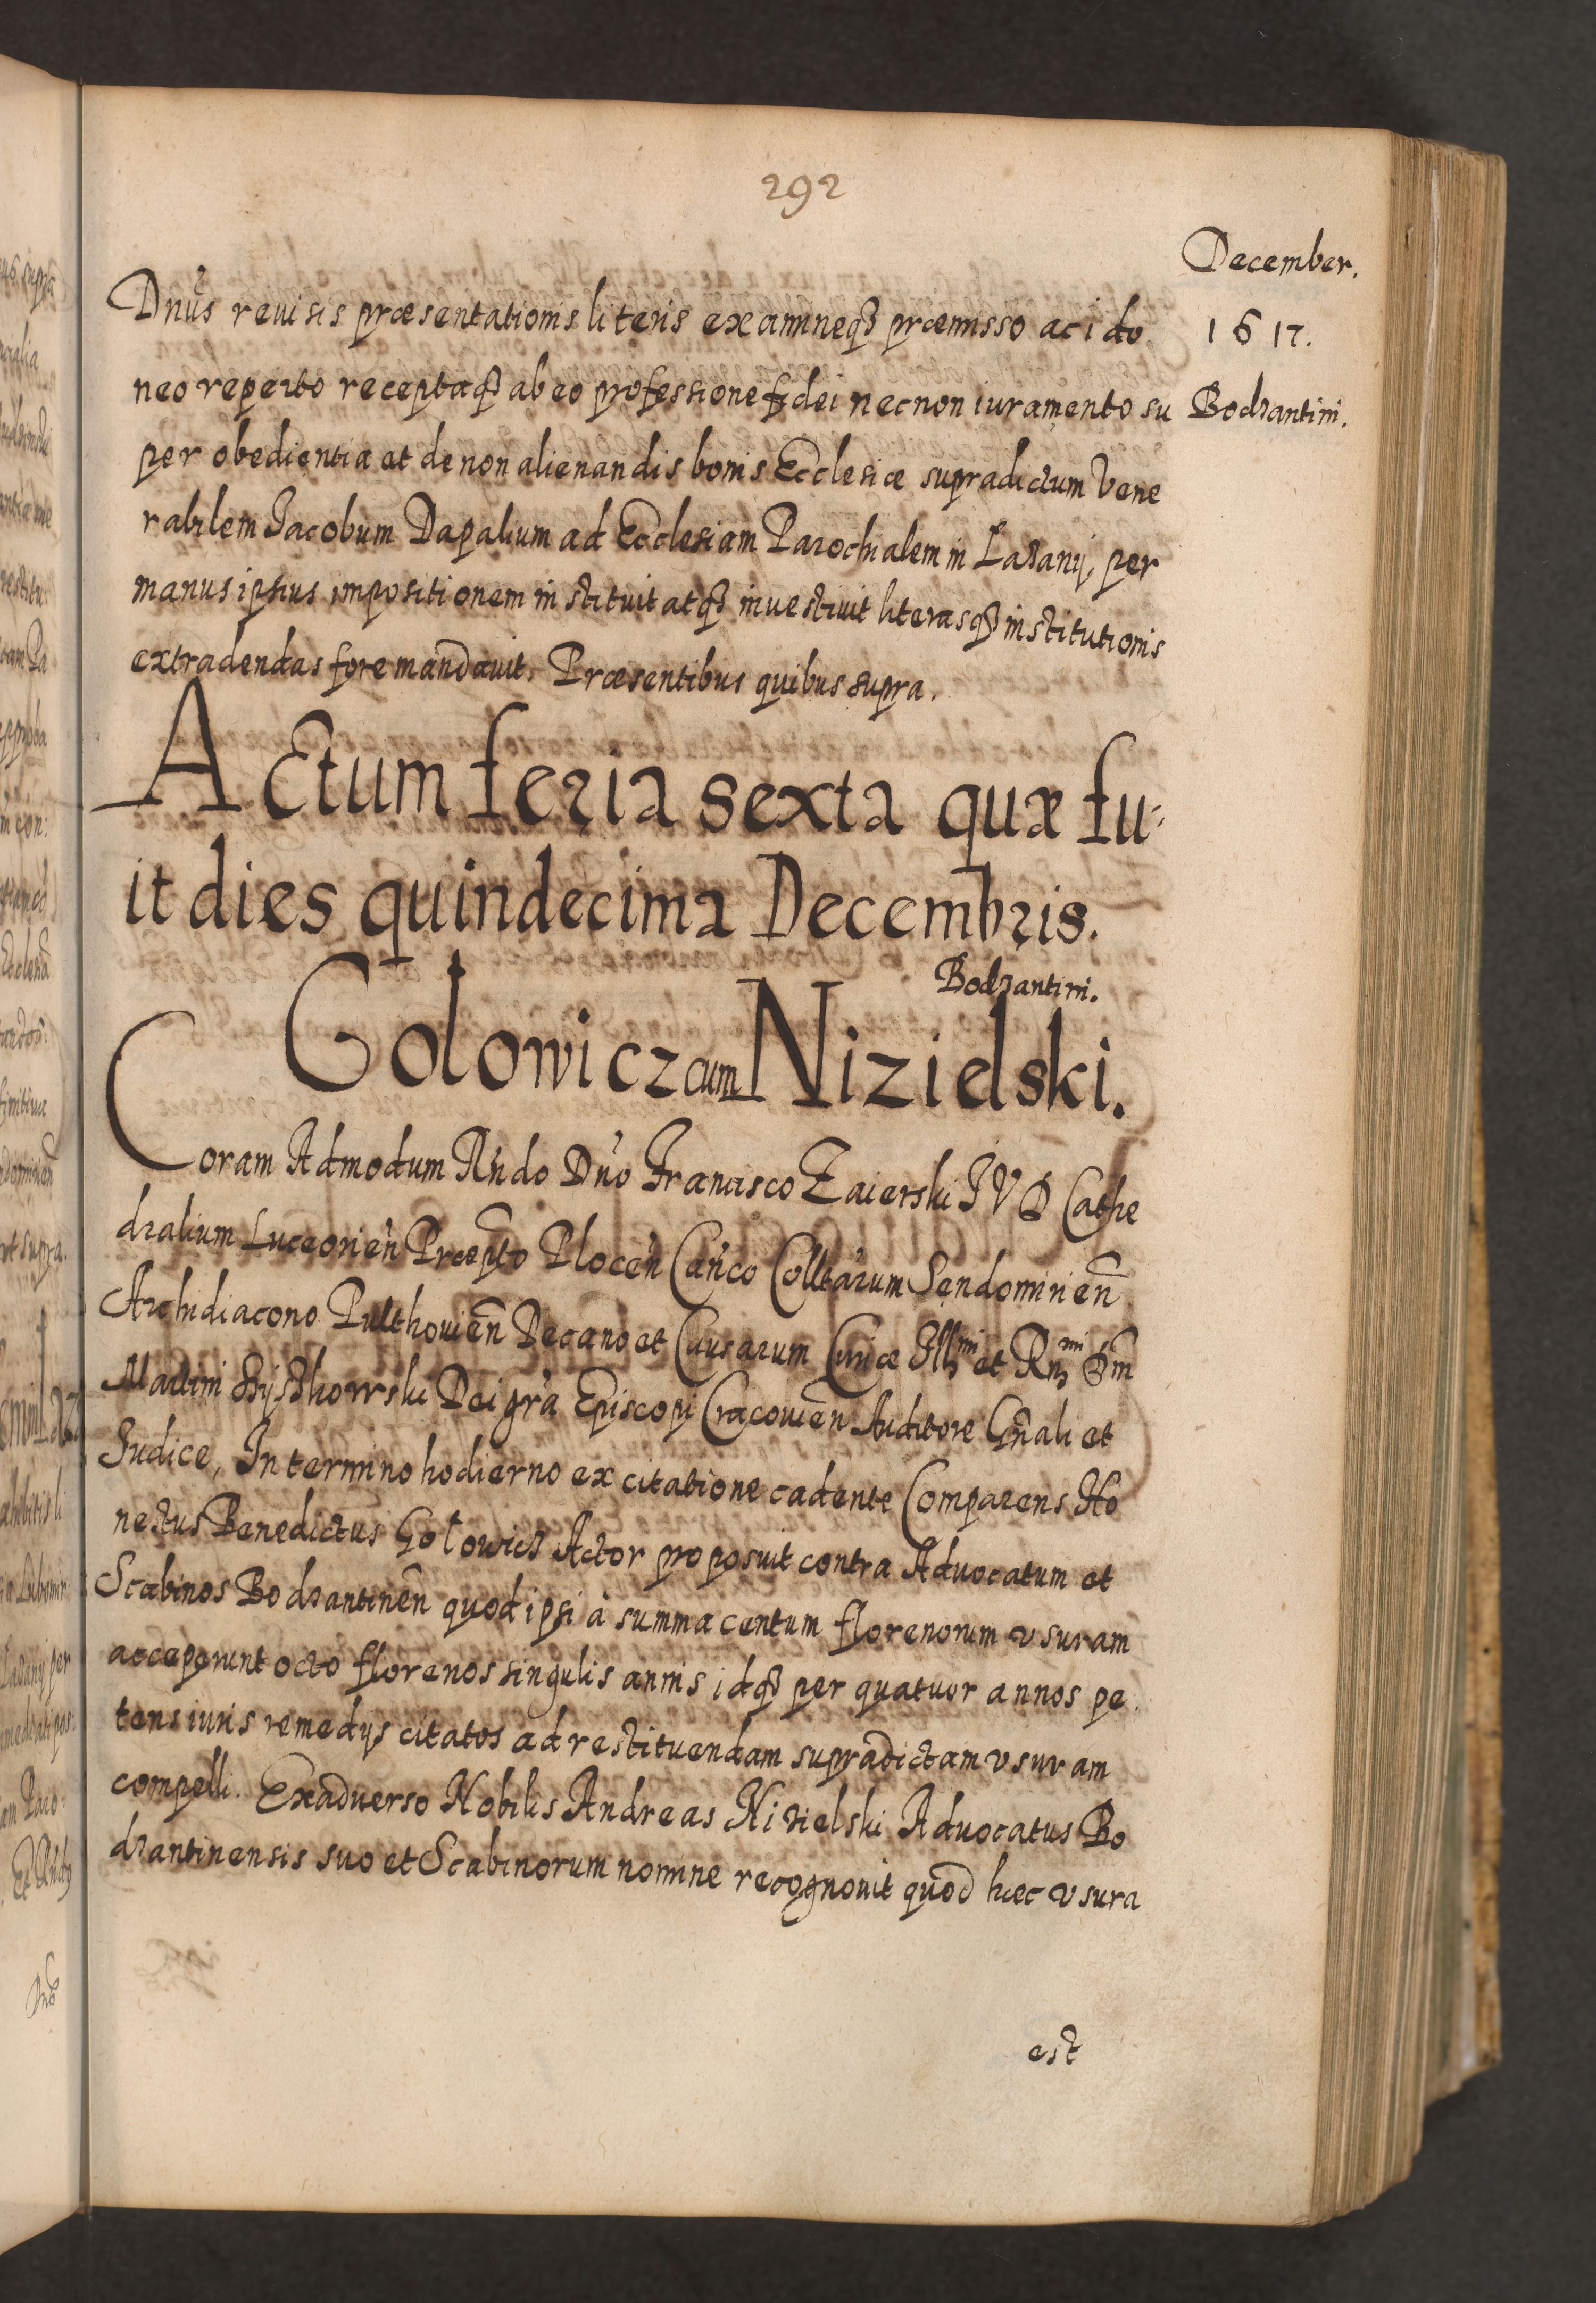 292
December.
1617.
Bodzantini.
Dnus reuisis præsentationis literis examineq3 præmisso ac ido
neo reperto receptaq3 ab eo professione fidei necnon iuramento su
per obedientia et de non alienandis bonis Ecclesiæ supradictum Vene
rabilem Jacobum Dapalium ad Ecclesiam Parochialem in Lazany, per
manus ipsius impositionem instituit atq3 inuestiuit literasq3 institutionis
extradendas fore mandauit. Præsentibus quibus supra.
Actum feria sexta quæ fu-
it dies quindecima Decembris.
Bodzantini.
Gołowicz cum Nizielski.
Coram Admodum Rndo Dno Francisco Zaierski JVD Cathe
dralium Luceorien Præpto Plocen Canco Colltarum Sendomirien
Archidiacono Pulthouien Decano et Causarum Curiæ Illmi et Rnmi Dni
Martini Szyszkowski Dei gra Episcopi Cracouien Auditore Gnali et
Judice, In termino hodierno ex citatione cadente Comparens Ho
nestus Benedictus Gołowicz Actor proposuit contra Aduocatum et
Scabinos Bodzantinen quod ipsi à summa centum florenorum vsuram
acceperunt octo florenos singulis annis idq3 per quatuor annos pe
tens iuris remedijs citatos ad restituendam supradictam vsuram
compelli. Exaduerso Nobilis Andreas Nizielski Aduocatus Bo
dzantinensis suo et Scabinorum nomine recognouit quod hæc vsura
est